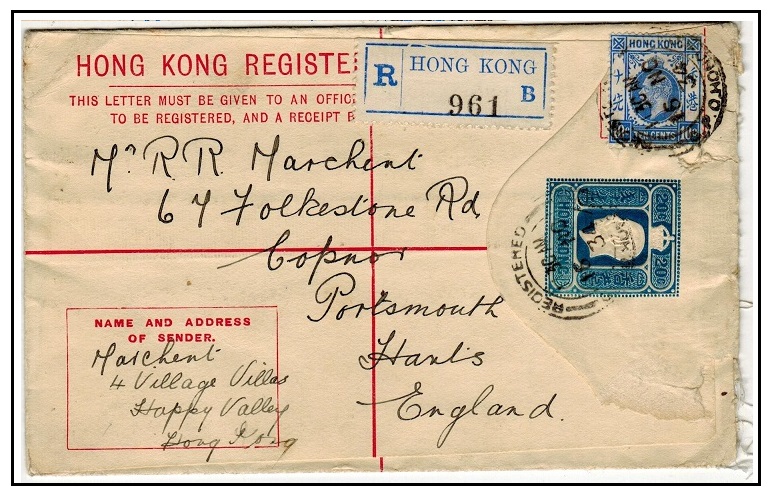 HONG KONG REGISTER
THIS LETTER MUST BE GIVEN TO AN OFFIC
TO BE REGISTERED, AND A RECEIPT
R HONG KONG
961 B
HONG KONG
TEN CENTS
Mr R. R. Marchent
67 Folkestone Rd
Copnor
Portsmouth
Hants
England.
HONG KONG
20c 20c
REGISTERED
34
NAME AND ADDRESS
OF SENDER.
Marchent
4 Village Villas
Happy Valley
Hong Kong